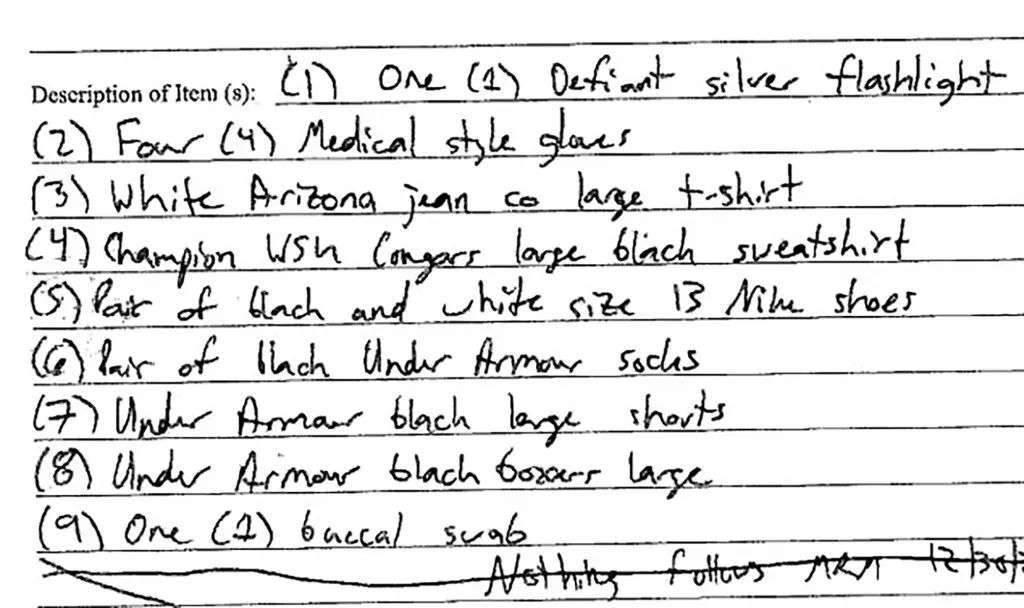 Description of Item (s): (1) One (1) Defiant silver flashlight
(2) Four (4) Medical style gloves
(3) White Arizona jean co large t-shirt
(4) Champion WSU Cougars large black sweatshirt
(5) Pair of black and white size 13 Nike shoes
(6) Pair of black Under Armour socks
(7) Under Armour black large shorts
(8) Under Armour black boxers large
(9) One (1) buccal swab
Nothing follows 12/30/